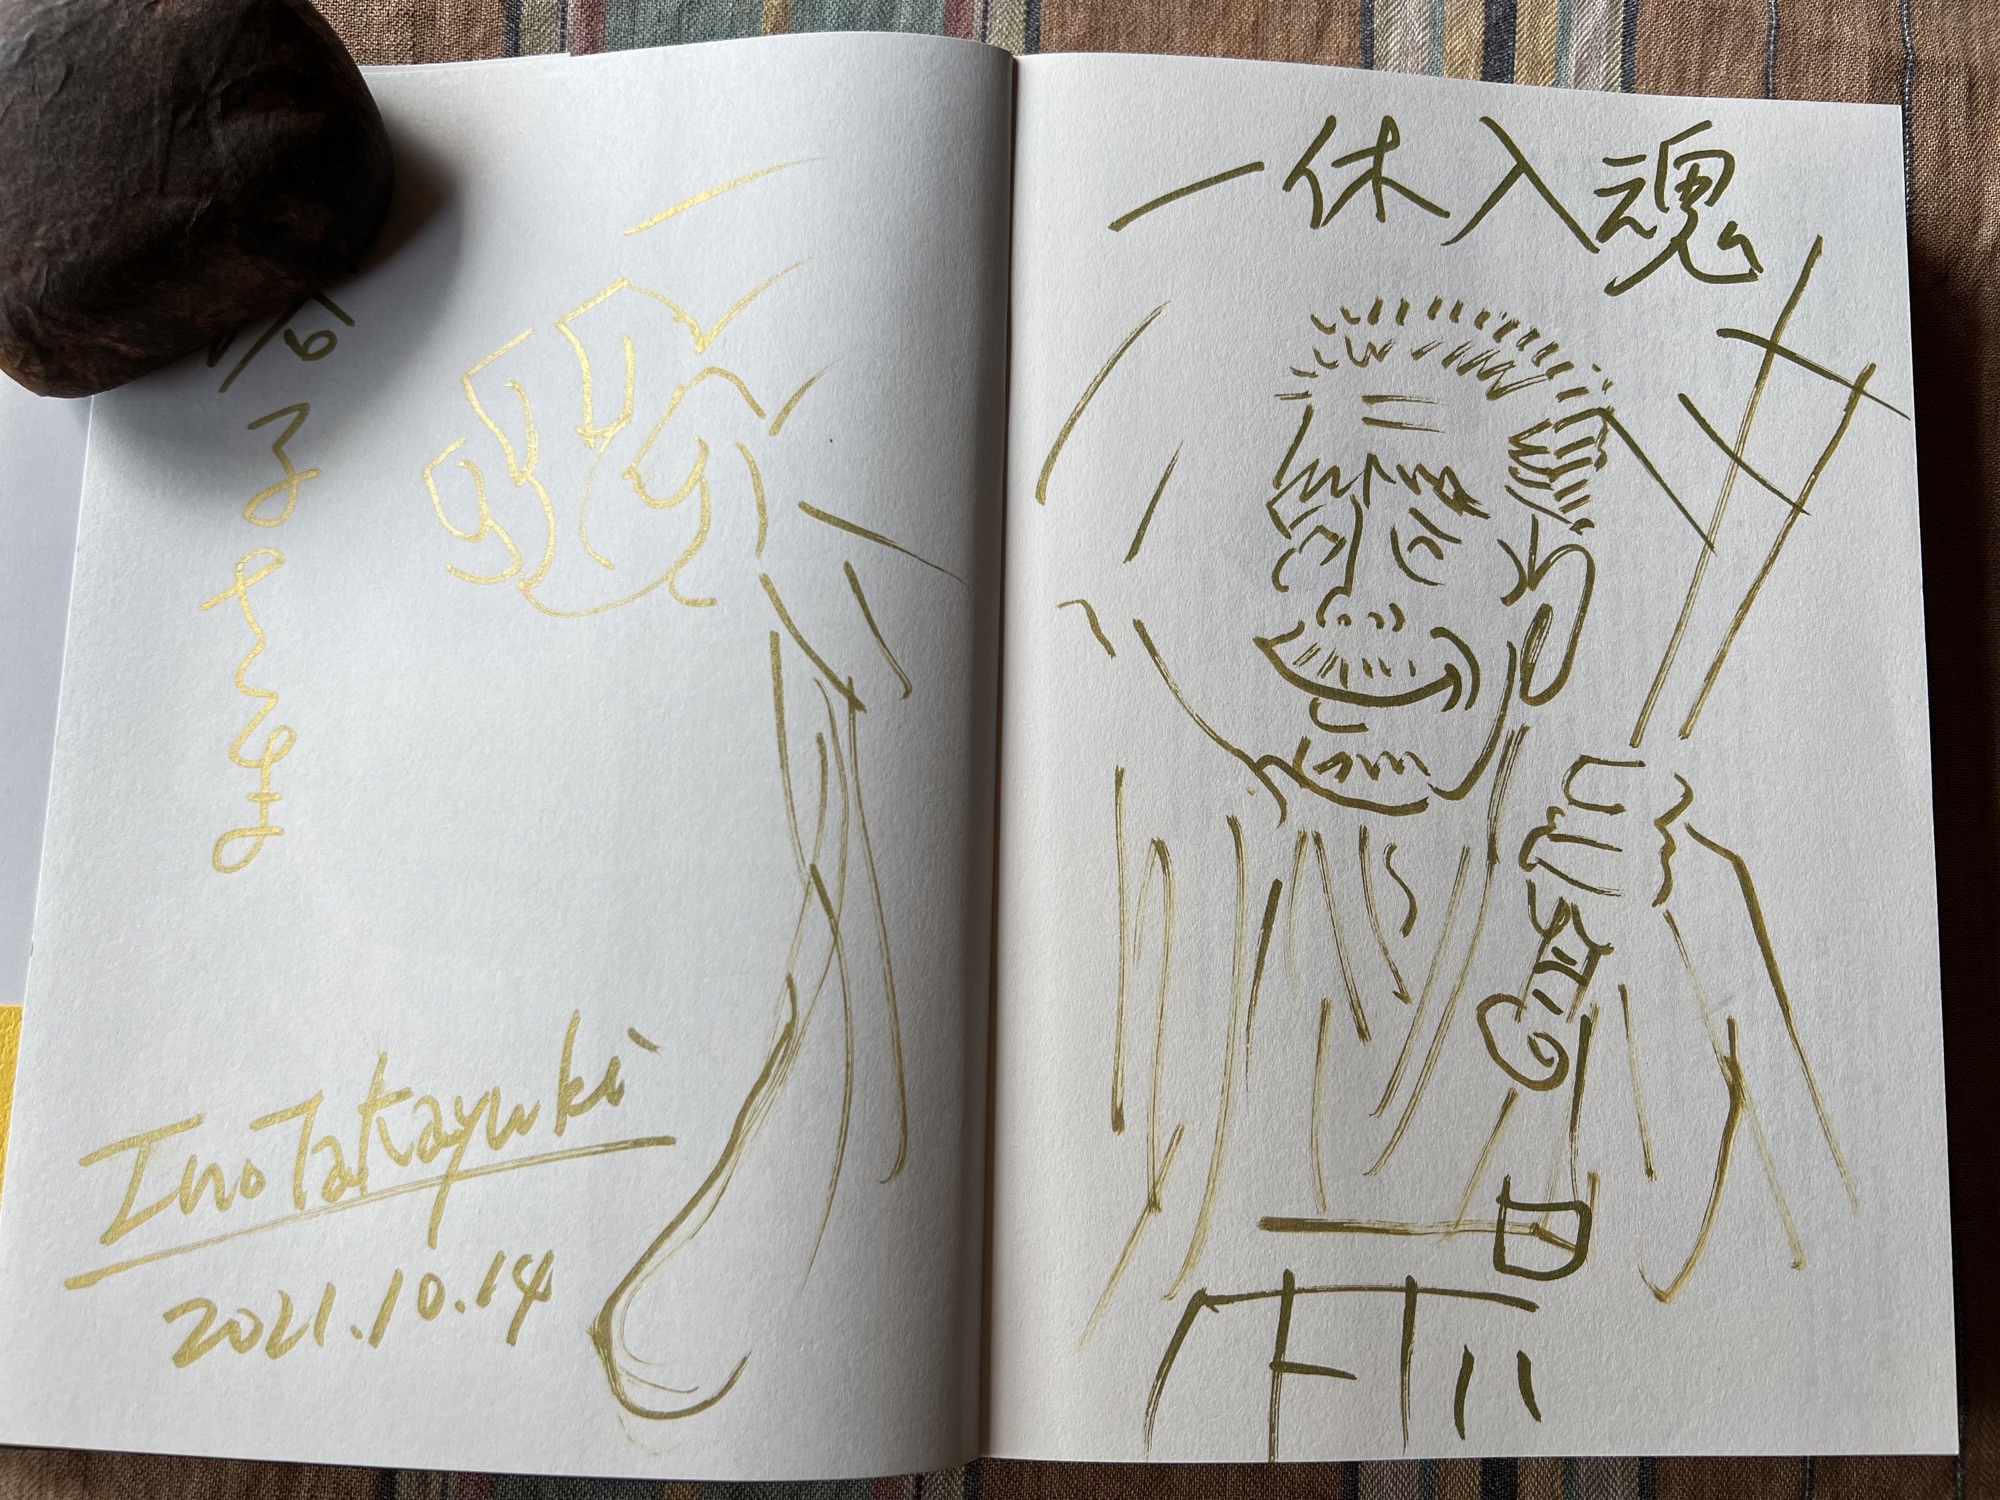 一休入魂
子さま
Ino Takayuki
2021.10.14